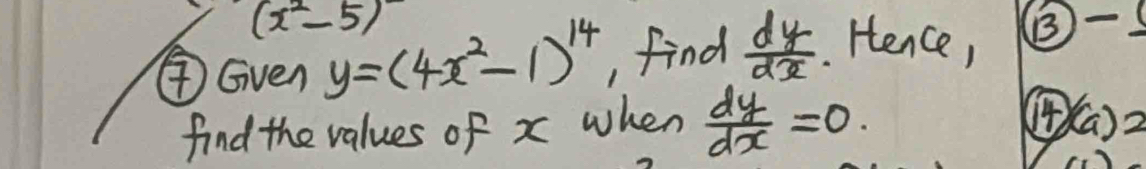 (x² - 5)
⑦ Given y = (4x² - 1)¹⁴, find dy/dx. Hence,
find the values of x when dy/dx = 0.
⑬ -
⑭ (a) 2